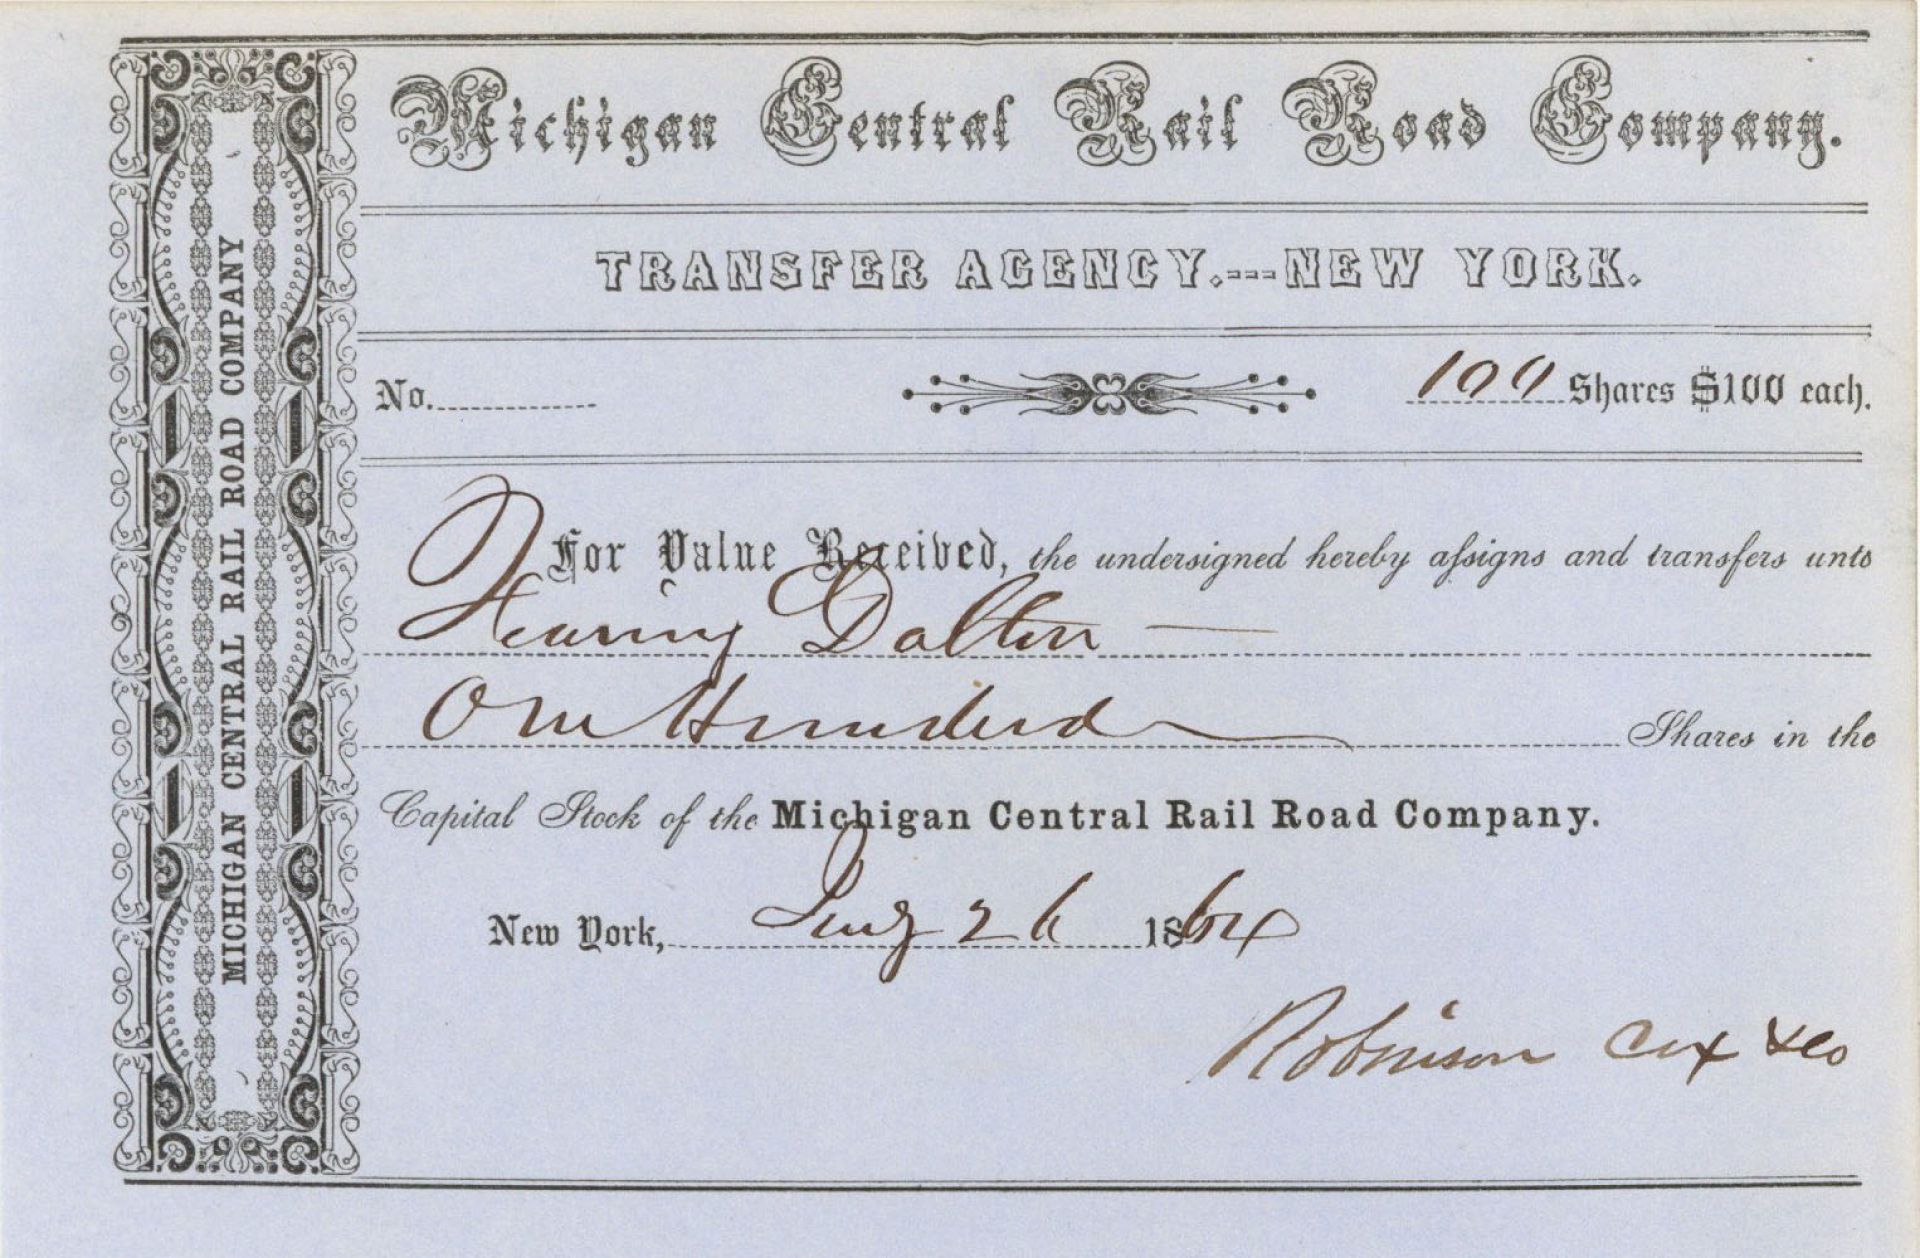 Michigan Central Rail Road Company.
TRANSFER AGENCY.---NEW YORK.
No. 100 Shares $100 each.
For Value Received, the undersigned hereby assigns and transfers unto
Dalton
One Hundred Shares in the
Capital Stock of the Michigan Central Rail Road Company.
New York, 26 1864
Robinson Cox & Co
MICHIGAN CENTRAL RAIL ROAD COMPANY